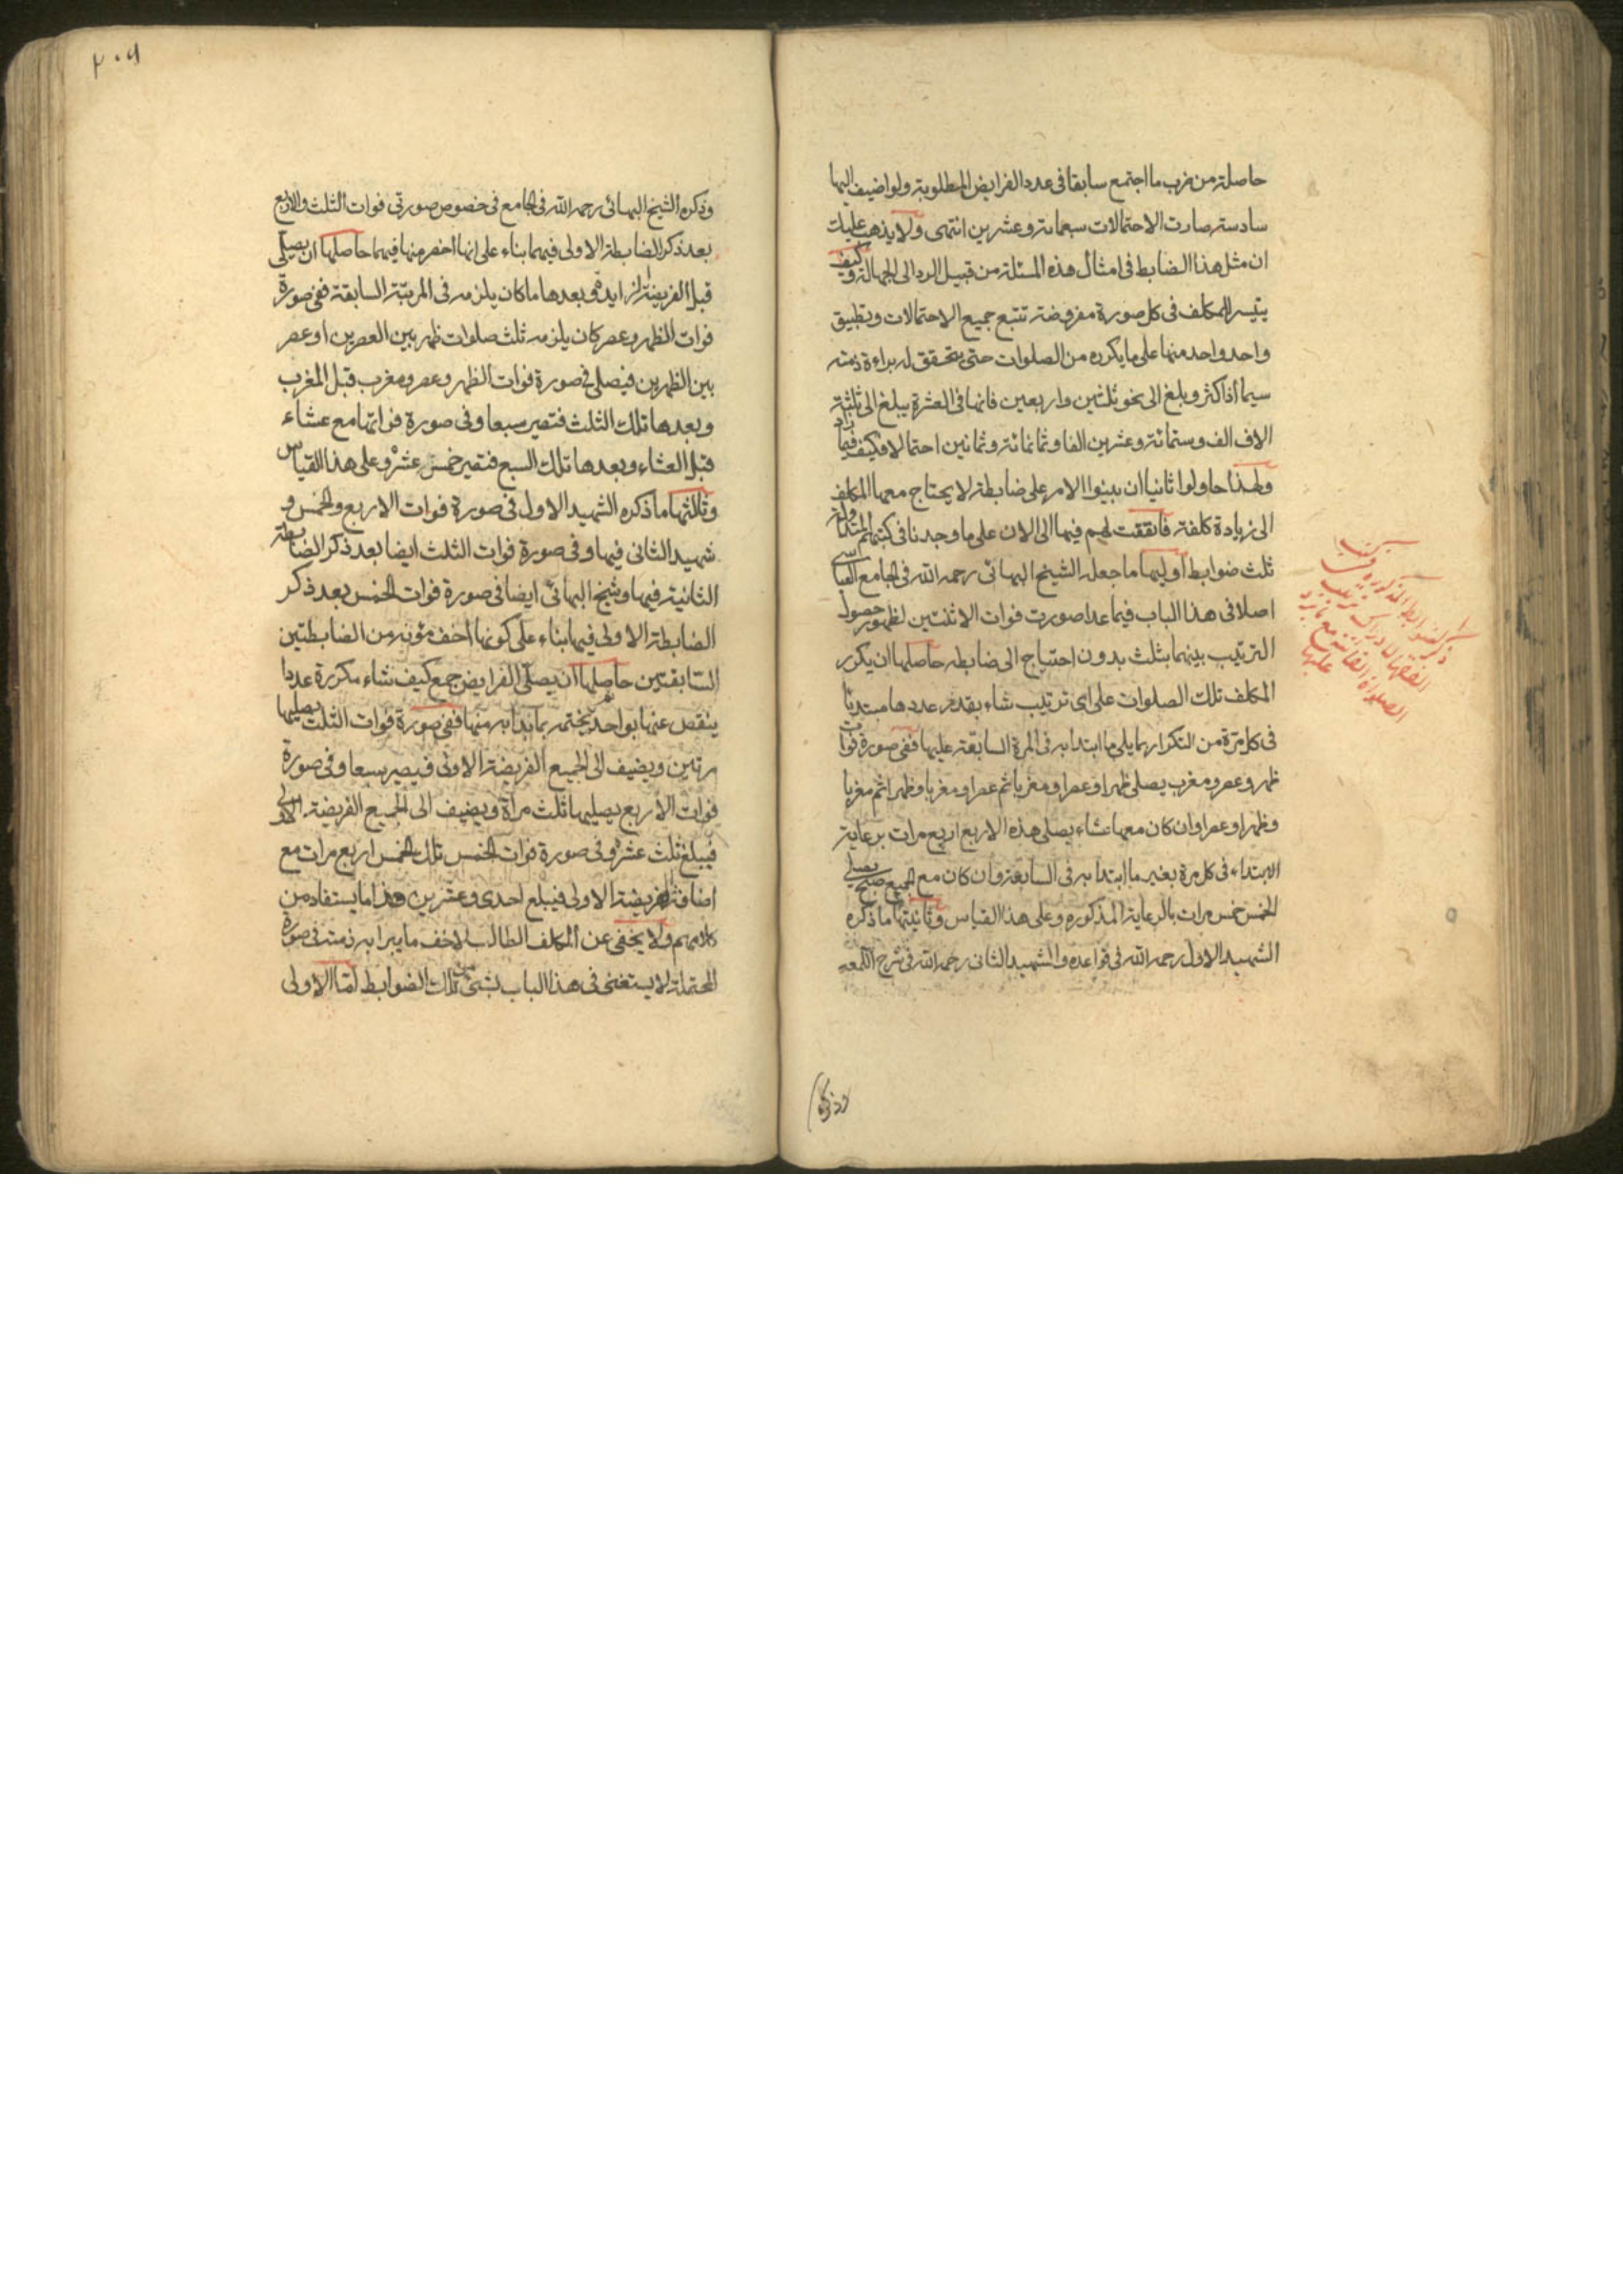 حاصلة من ضرب ما اجتمع سابقا فى عدد الفرايض المطلوبة ولو اضيف اليها
سادسة صارت الاحتمالات سبعمائة وعشرين انتهى ولا يذهب عليك
ان مثل هذا الضابط فى امثال هذه المسئلة من قبيل الرد الى الجهالة وكيف
يتيسر للمكلف فى كل صورة مفروضة تتبع جميع الاحتمالات وتطبيق
واحد واحد منها على ما يكرره من الصلوات حتى يتحقق له براءة ذمته
سيما اذا كثر وبلغ الى نحو ثلثين واربعين فانها فى العشرة يبلغ الى ثلثة
الاف الف وستمائة وعشرين الفا وثمانمائة وثمانين احتمالا فكيف فيما زاد
ولهذا حاولوا ثانيا ان يبنوا الامر على ضابطة لا يحتاج معها المكلف
الى زيادة كلفة فاتفقت لهم فيها الى الان على ما وجدنا فى كتبهم المتداولة
ثلث ضوابط اوليها ما جعله الشيخ البهائى رحمه الله فى الجامع العباسى
اصلا فى هذا الباب فيما عدا صورت فوات الاثنتين لظهور حصول
الترتيب بينهما بثلث بدون احتياج الى ضابطه حاصلها ان يكرر
المكلف تلك الصلوات على اى ترتيب شاء بقدر عددها مبتديًا
فى كل مرة من التكرار بما يلى ما ابتدا به فى المرة السابقة عليها ففى صورة فوات
ظهر وعصر ومغرب يصلى ظهرا وعصرا ومغربا ثم عصرا ومغربا وظهرا ثم مغربا
وظهرا وعصرا وان كان معها عشاء يصلى هذه الاربع اربع مرات برعاية
الابتداء فى كل مرة بغير ما ابتدا به فى السابقة وان كان مع الجميع صبح يصلى
الخمس خمس مرات بالرعاية المذكوره وعلى هذا القياس وثانيتها ما ذكره
الشهيد الاول رحمه الله فى قواعده والشهيد الثانى رحمه الله فى شرح اللمعه
وذكره
ذكر الضوابط المذكورة فى كتب
الفقهاء لادراك ترتيب
الصلواة الفائتة مع
عليها
٢٠٩
وذكره الشيخ البهائى رحمه الله فى الجامع فى خصوص صورتى فوات الثلث والاربع
بعد ذكر الضابطة الاولى فيهما بناء على انها اخصر منها فيهما حاصلها ان يصلى
قبل الفريضة الزايدة وبعدها ما كان يلزمه فى المرتبة السابقة ففى صورة
فوات الظهر وعصر كان يلزمه ثلث صلوات ظهر بين العصرين او عصر
بين الظهرين فيصلى فى صورة فوات الظهر وعصر ومغرب قبل المغرب
وبعدها تلك الثلث فتصير سبعا وفى صورة فواتها مع عشاء
قبل العشاء وبعدها تلك السبع فتصير خمس عشرة وعلى هذا القياس
وثالثها ما ذكره الشهيد الاول فى صورة فوات الاربع والخمس و
شهيد الثانى فيها وفى صورة فوات الثلث ايضا بعد ذكر الضابطة
الثانية فيها وشيخ البهائى ايضا فى صورة فوات الخمس بعد ذكر
الضابطة الاولى فيها بناء على كونها اخف مؤنة من الضابطتين
السابقتين حاصلها ان يصلى الفرايض جمع كيف شاء مكررة عددا
ينقص عنها بواحد ثم يختم بما بدا به منها ففى صورة فوات الثلث يصليها
مرتين ويضيف الى الجميع الفريضة الاولى فيصير سبعا وفى صورة
فوات الاربع يصليها ثلث مرأة ويضيف الى الجميع الفريضة الاولى
فيبلغ ثلث عشرة وفى صورة فوات الخمس تلك الخمس اربع مرات مع
اضافة الفريضة الاولى فيبلع احدى وعشرين وهذا ما يستفاد من
كلامهم ولا يخفى عن المكلف الطالب لاخف ما يبرا به ذمته فى صورة
المحتملة لا يستغنى فى هذا الباب بشئ من تلك الضوابط امّا الاولى